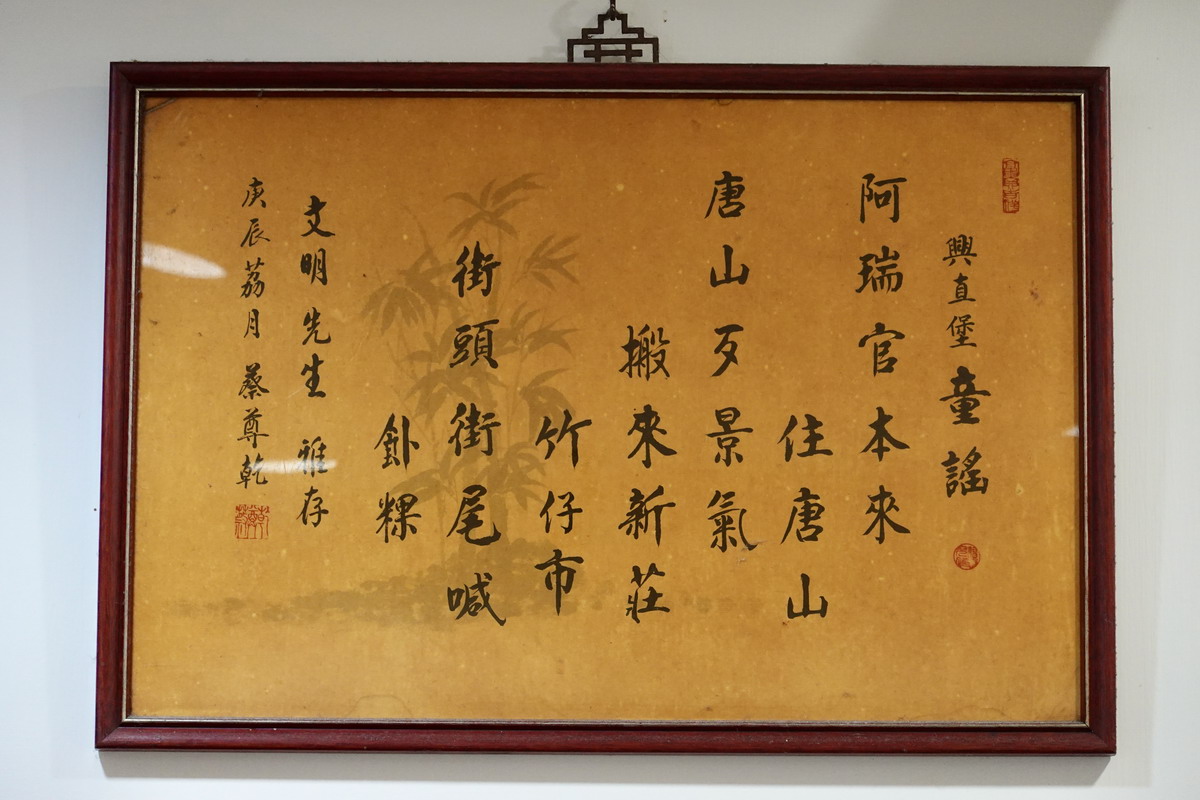 興直堡 童謠
阿瑞官本來
住唐山
唐山歹景氣
搬來新莊
竹仔市
街頭街尾喊
釙粿
文明先生 雅存
庚辰荔月 蔡尊乾